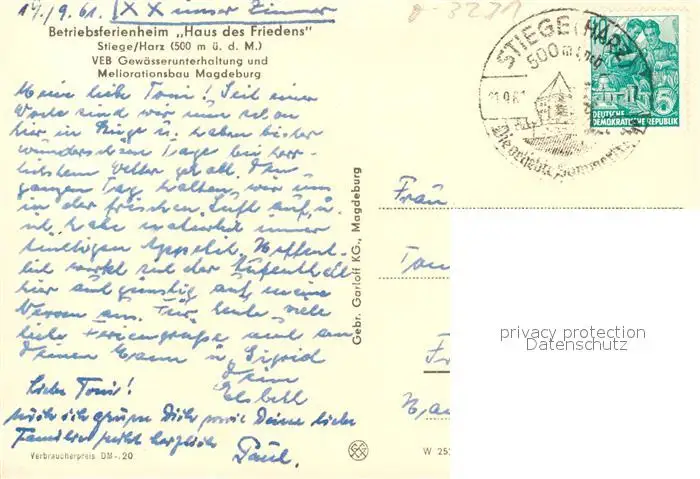 19./9.61. XX unser Zimmer
Betriebsferienheim „Haus des Friedens"
Stiege/Harz (500 m ü. d. M.)
VEB Gewässerunterhaltung und
Meliorationsbau Magdeburg
Meine liebe Toni! Seit einer
Woche sind wir nun schon
hier in Stiege u. haben bisher
wunderschöne Tage bei herr-
lichstem Wetter gehabt. Den
ganzen Tag halten wir uns
in der frischen Luft auf, u.
ich habe natürlich immer
tüchtigen Appetit. Hoffent-
lich wirkt sich der Aufenthalt
hier auch günstig auf meine
Nerven aus. Für heute viele
liebe Feriengrüße auch an
Deinen Mann u. Sigrid
Dein
Elsbeth
Liebe Toni!
Auch ich grüße Dich sowie Deine liebe
Familie recht herzlich
Paul.
Verbraucherpreis DM -.20
Gebr. Garloff KG., Magdeburg
W 25
0-3271
STIEGE (HARZ)
500 m ü. NN
DEUTSCHE
DEMOKRATISCHE REPUBLIK
5
Frau
Ton
Fr
privacy protection
Datenschutz